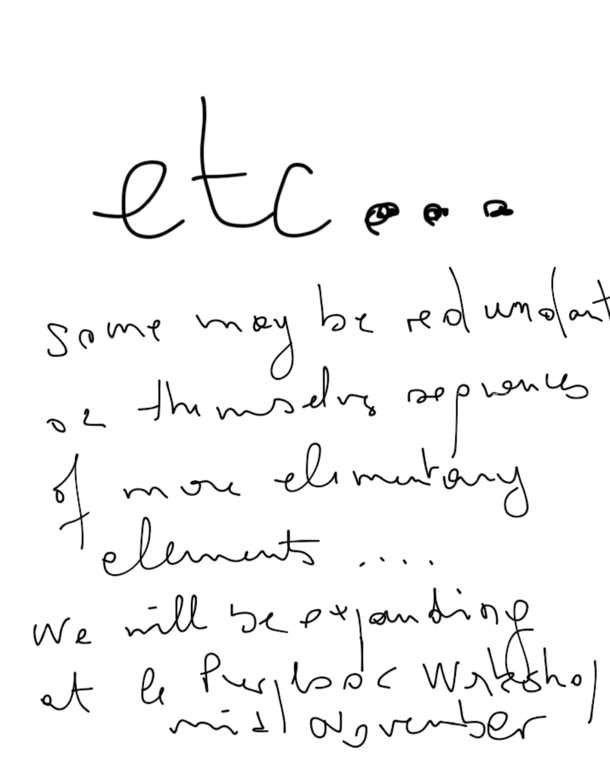 etc...
some may be redundant
or themselves sequences
of more elementary
elements ....
we will be expanding
at
mid November